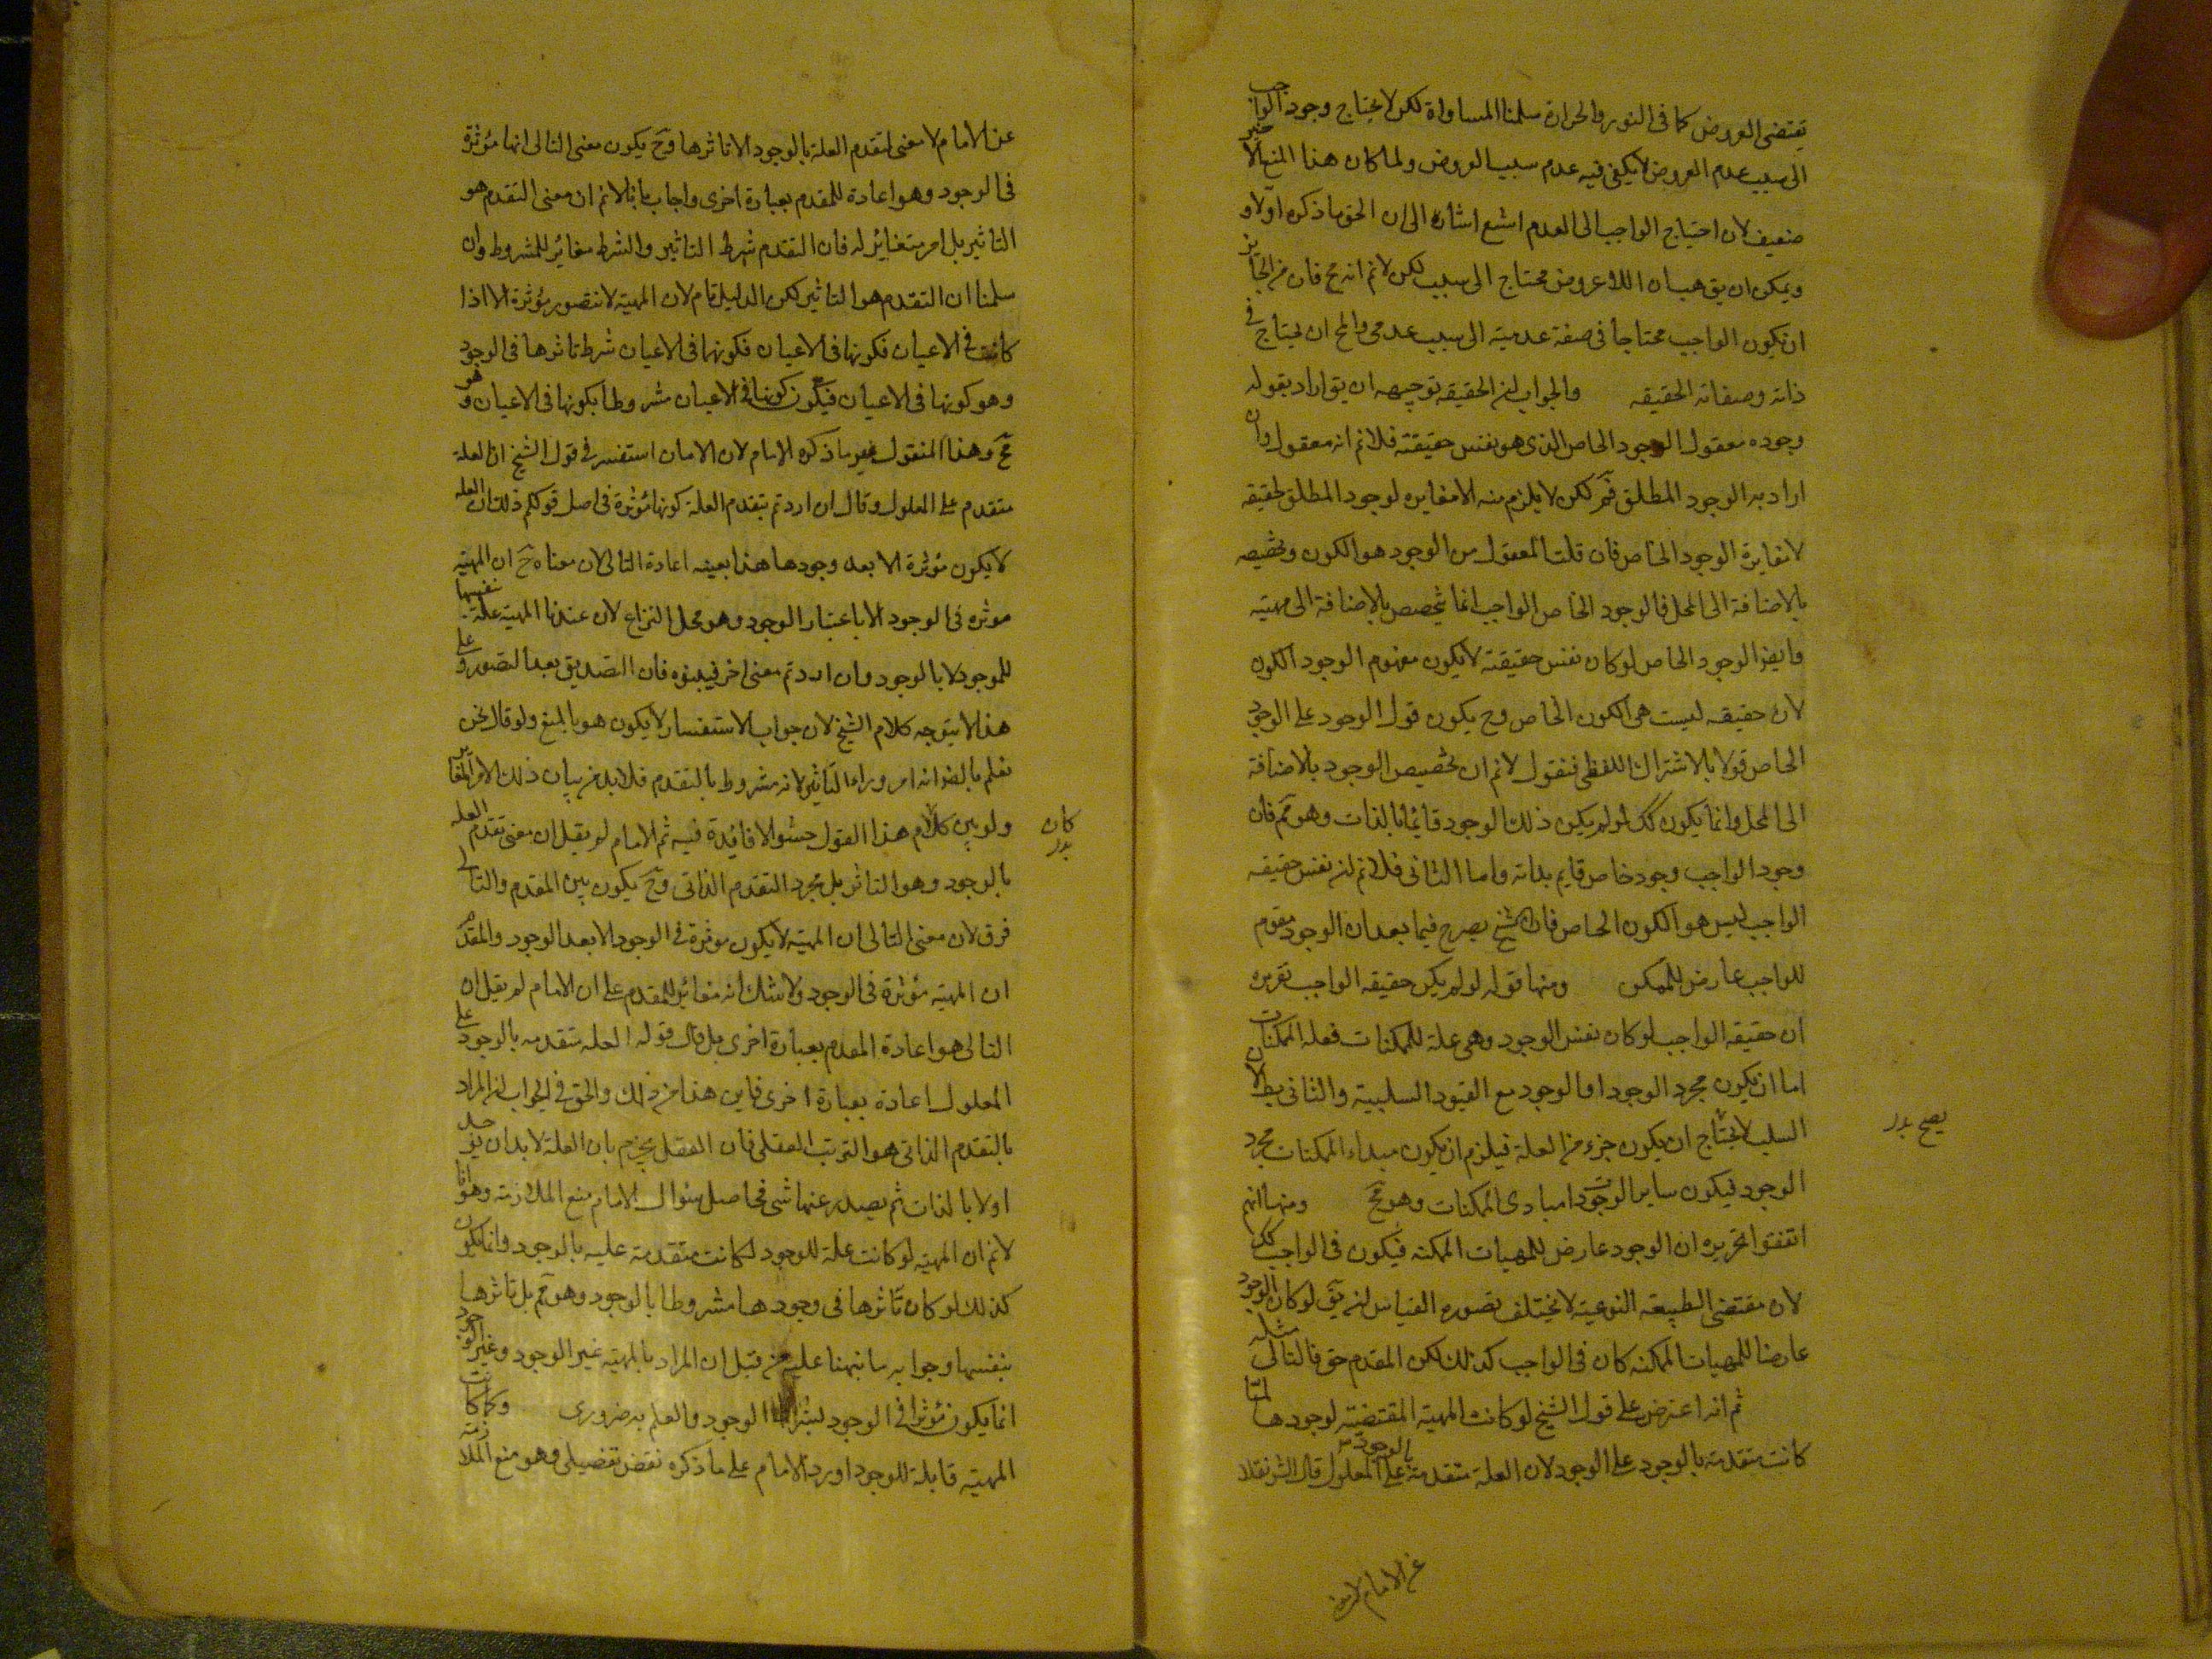 يقتضى العروض كما فى النور والحرارة سلمنا المساواة لكن لا يحتاج وجود الواجب
الى سبب عدم العروض لا يكفى فيه عدم سبب العروض ولما كان هذا المنع الاخير
ضعيف لان احتياج الواجب الى العدم اشنع اشارة الى ان الحق ما ذكره اولا و
ويمكن ان يق هب ان اللاعروض محتاج الى سبب لكن لا نم انه مح فان من الجائز
ان يكون الواجب محتاجا فى صفة عدمية الى سبب عدمى والمح ان يحتاج فى
ذاته وصفاته الحقيقه والجواب ان الحقيقه توجيهه ان يق اراد بقوله
وجوده معقول الوجود الخاص الذى هو نفس حقيقته فلا نم انه معقول وان
اراد به الوجود المطلق فم لكن لا يلزم منه الا مغايره لوجود المطلق لحقيقه
لا مغايرة الوجود الخاص فان قلت المعقول من الوجود هو الكون وتخصيصه
بالاضافة الى المحل فالوجود الخاص الواجب انما يخصص بالاضافة الى مهيته
وايضا الوجود الخاص لو كان نفس حقيقته لا يكون مفهوم الوجود الكون
لان حقيقه ليست هى الكون الخاص وح يكون قول الوجود على الوجود
الخاص قولا بالاشتراك اللفظى فنقول لا نم ان تخصيص الوجود بالاضافة
الى المحل وانما يكون كك لو لم يكن ذلك الوجود قايما بالذات وهو مم فان
وجود الواجب وجود خاص قايم بذاته واما الثانى فلا نم ان نفس حقيقه
الواجب ليس هو الكون الخاص فان الشيخ يصرح فيما بعد ان الوجود مقوم
للواجب عارض للممكن ومنها قوله لو لم يكن حقيقه الواجب تقريره
ان حقيقه الواجب لو كان نفس الوجود وهى علة للممكنات فعله الممكنات
اما ان يكون مجرد الوجود او الوجود مع القيود السلبية والثانى بط لان
السلب لا يحتاج ان يكون جزء من العلة فيلزم ان يكون مبداء الممكنات مجرد
الوجود فيكون ساير الوجودات مبادى الممكنات وهو مح ومنها انهم
اتفقوا تحريره ان الوجود عارض للمهيات الممكنه فيكون فى الواجب كك
لان مقتضى الطبيعه النوعية لا يختلف بصوره القياس ان يق لو كان الوجود
عارضا للمهيات الممكنه كان فى الواجب كذلك لكن المقدم حق فالتالى مثله
ثم انه اعترض على قول الشيخ لو كانت المهية المقتضية لوجودها لما
كانت متقدمة بالوجود على الوجود لان العلة متقدمة على المعلول بالوجود قال الش نقلا
يصح بدر
عن الامام لا معنى لتقدم العلة بالوجود الا تاثرها وح يكون معنى التالى انها مؤثرة
فى الوجود وهو اعادة للمقدم بعبارة اخرى واجاب بانا لا نم ان معنى التقدم هو
التاثير بل امر متغاير له فان التقدم شرط التاثير والشرط مغاير للمشروط وان
سلمنا ان التقدم هو التاثير لكن الدليل تام لان المهية لا تتصور مؤثرة الا اذا
كانت فى الاعيان فكونها فى الاعيان فكونها فى الاعيان شرط تاثرها فى الوجود
وهو كونها فى الاعيان فيكون كونها فى الاعيان مشروطا بكونها فى الاعيان وهو
مح وهذا المنقول غير ما ذكره الامام لان الامان استفسر فى قول الشيخ ان العلة
متقدم على المعلول وقال ان اردتم بتقدم العلة كونها مؤثرة فى اصل قولكم ذلك ان العله
لا يكون مؤثرة الا بعد وجودها هذا بعينه اعادة التالى لان معناه ح ان المهية
موثره فى الوجود الا باعتبار الوجود وهو محل النزاع لان عندنا المهية علة نفسها
للموجود لا بالوجود وان اردتم معنى اخر فبينوه فان التصديق بعد التصور وعلى
هذا لا يتوجه كلام الشيخ لان جواب الاستفسار لا يكون هو بالمنع ولو قال نحن
نعلم بالض انه امر وراء التاثير لانه مشروط بالتقدم فلا بد من بيان ذلك الامر المغاير
ولو بين كلام هذا القول حشوا لا فائدة فيه ثم الامام لم يقل ان معنى تقدم العله
كان بدر
بالوجود وهو التاثر بل مجرد التقدم الذاتى وح يكون بين المقدم والتالى
فرق لان معنى التالى ان المهية لا يكون موثرة فى الوجود الا بعد الوجود والمقدم
ان المهية مؤثرة فى الوجود ولا شك انه مغاير للمقدم على ان الامام لم يقل ان
التالى هو اعادة المقدم بعبارة اخرى بل قال قوله العله متقدمه بالوجود على
المعلول اعادة بعبارة اخرى فاين هذا من ذلك والحق فى الجواب ان المراد
بالتقدم الذاتى هو الترتب العقلى فان العقل يجزم بان العلة لا بد ان يوجد
اولا بالذات ثم يصدر عنها شى فحاصل سوال الامام منع الملازمة وهو انا
لا نم ان المهية لو كانت علة للوجود لكانت متقدمة عليه بالوجود وانما يكون
كذلك لو كان تاثرها فى وجودها مشروطا بالوجود وهو مم بل تاثرها
بنفسها وجوابه ما نبهنا عليه من قبل ان المراد بالمهية غير الوجود وغير الوجود
انما يكون مؤثرا فى الوجود بشرط الوجود والعلم به ضرورى وكما كانت
المهية قابلة للوجود اورد الامام على ما ذكره نقض تفصيلى وهو منع الملازمة